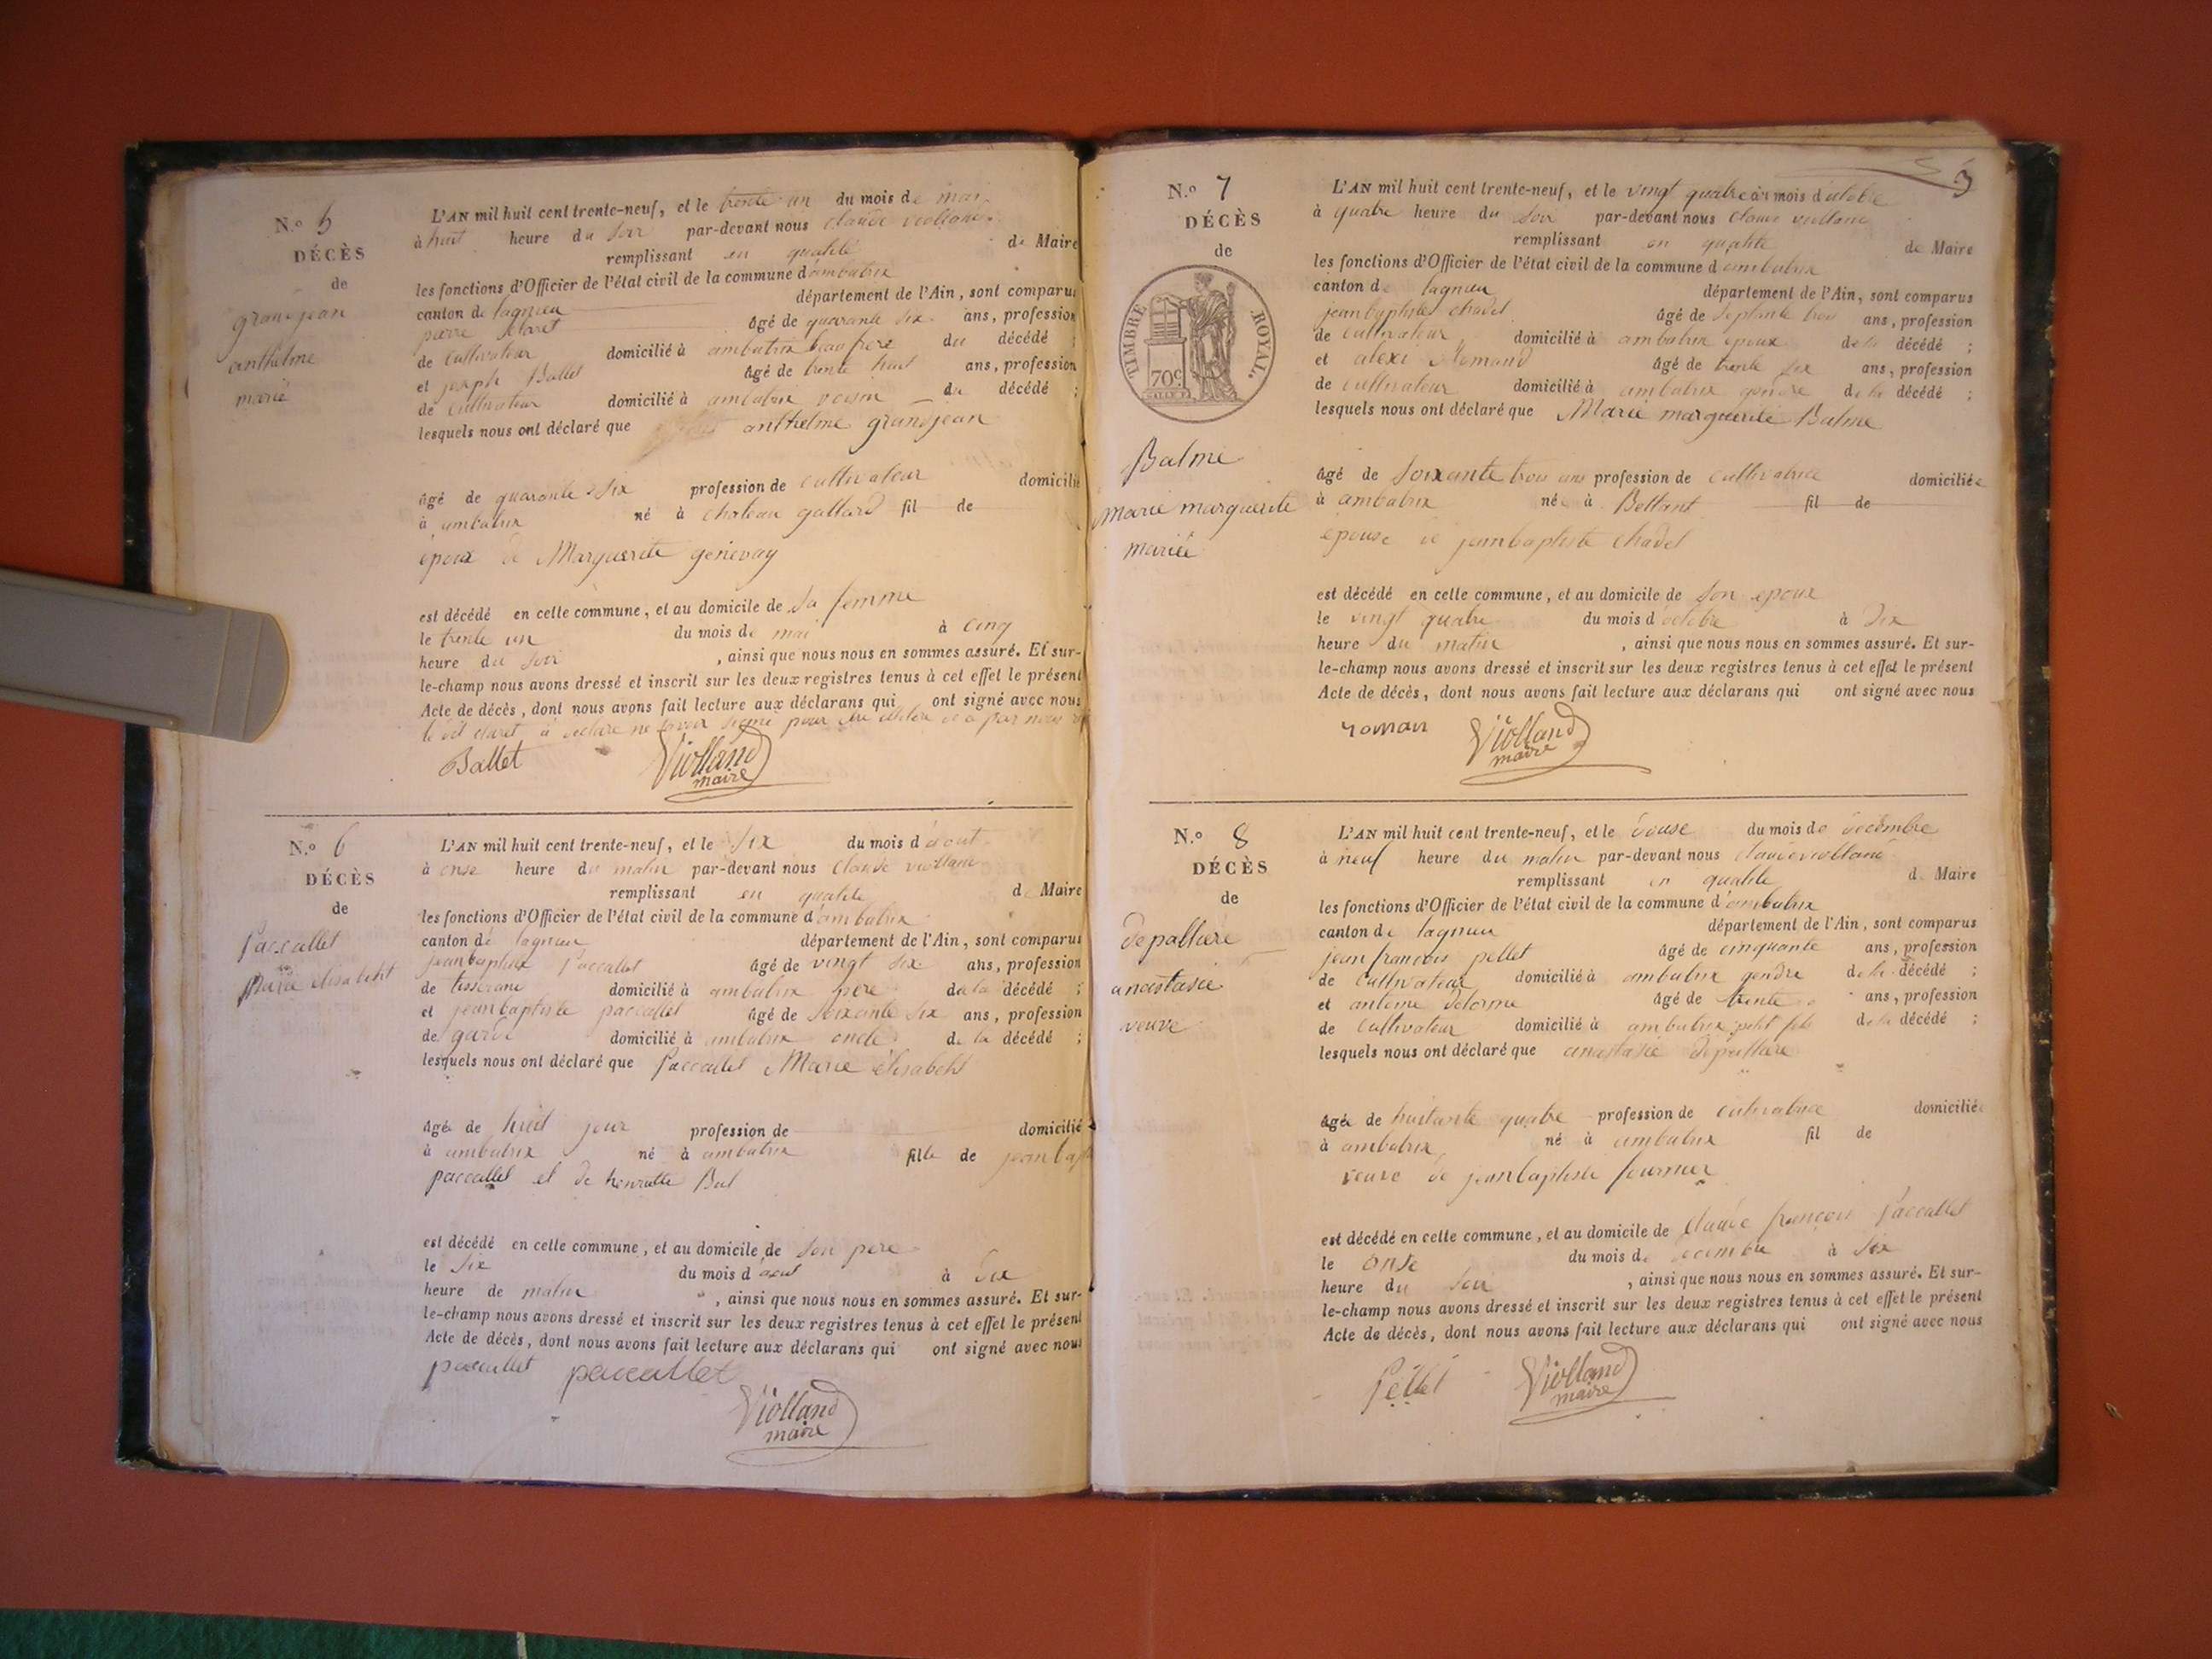 N.o 5
DÉCÈS
de
grandjean
anthelme
marié
L'AN mil huit cent trente-neuf, et le trente un du mois de mai
à huit heure du soir par-devant nous claude violland
remplissant en qualité de Maire
les fonctions d'Officier de l'état civil de la commune d'ambutrix
canton de lagnieu département de l'Ain, sont comparus
pierre claret âgé de quarante six ans, profession
de cultivateur domicilié à ambutrix beaufrere du décédé ;
et joseph Ballet âgé de trente huit ans, profession
de cultivateur domicilié à ambutrix voisin du décédé ;
lesquels nous ont déclaré que anthelme grandjean
âgé de quarante six profession de cultivateur domicilié
à ambutrix né à chateau gallard fil de
époux de Marguerite génevay
est décédé en cette commune, et au domicile de sa femme
le trente un du mois de mai à cinq
heure du soir , ainsi que nous nous en sommes assuré. Et sur-
le-champ nous avons dressé et inscrit sur les deux registres tenus à cet effet le présent
Acte de décès, dont nous avons fait lecture aux déclarans qui ont signé avec nous
le dit claret à déclaré ne savoir signé pour par nous
Ballet Violland
maire
N.o 6
DÉCÈS
de
Paccallet
Marie elisabeht
L'AN mil huit cent trente-neuf, et le six du mois d'aout
à onse heure du matin par-devant nous Claude violland
remplissant en qualité de Maire
les fonctions d'Officier de l'état civil de la commune d'ambutrix
canton de lagnieu département de l'Ain, sont comparus
jeanbaptiste Paccallet âgé de vingt six ans, profession
de tisserand domicilié à ambutrix pere de la décédé ;
et jeanbaptiste paccallet âgé de soixante six ans, profession
de garde domicilié à ambutrix oncle de la décédé ;
lesquels nous ont déclaré que Paccallet Marie élisabeht
âgée de huit jour profession de domicilié
à ambutrix né à ambutrix fille de jeanbap
paccallet et de henriette Bal
est décédé en cette commune, et au domicile de son pere
le six du mois d'aout à six
heure de matin , ainsi que nous nous en sommes assuré. Et sur-
le-champ nous avons dressé et inscrit sur les deux registres tenus à cet effet le présent
Acte de décès, dont nous avons fait lecture aux déclarans qui ont signé avec nous
paccallet paccallet
Violland
maire
3
N.o 7
DÉCÈS
de
TIMBRE ROYAL.
70c
Balme
marie marguerite
mariée
L'AN mil huit cent trente-neuf, et le vingt quatre du mois d'octobre
à quatre heure du soir par-devant nous claude violland
remplissant en qualité de Maire
les fonctions d'Officier de l'état civil de la commune d'ambutrix
canton de lagnieu département de l'Ain, sont comparus
jeanbaptiste chadel âgé de septante trois ans, profession
de cultivateur domicilié à ambutrix époux de la décédé ;
et alexi Romand âgé de trente six ans, profession
de cultivateur domicilié à ambutrix gendre de la décédé ;
lesquels nous ont déclaré que Marie marguerite Balme
âgé de soixante trois ans profession de cultivatrice domiciliée
à ambutrix née à Bettant fil de
épouse de jeanbaptiste chadel
est décédé en cette commune, et au domicile de son époux
le vingt quatre du mois d'octobre à dix
heure du matin , ainsi que nous nous en sommes assuré. Et sur-
le-champ nous avons dressé et inscrit sur les deux registres tenus à cet effet le présent
Acte de décès, dont nous avons fait lecture aux déclarans qui ont signé avec nous
roman Violland
maire
N.o 8
DÉCÈS
de
depalliere
anastasie
veuve
L'AN mil huit cent trente-neuf, et le douse du mois de décembre
à neuf heure du matin par-devant nous claude violland
remplissant en qualité de Maire
les fonctions d'Officier de l'état civil de la commune d'ambutrix
canton de lagnieu département de l'Ain, sont comparus
jean francois pellet âgé de cinquante ans, profession
de cultivateur domicilié à ambutrix gendre de la décédé ;
et antoine delorme âgé de trente ans, profession
de cultivateur domicilié à ambutrix petit fils de la décédé ;
lesquels nous ont déclaré que anastasie depalliere
âgée de huitante quatre profession de cultivatrice domiciliée
à ambutrix né à ambutrix fil de
veuve de jeanbaptiste fournier
est décédé en cette commune, et au domicile de claude françois Paccallet
le onse du mois de décembre à six
heure du soir , ainsi que nous nous en sommes assuré. Et sur-
le-champ nous avons dressé et inscrit sur les deux registres tenus à cet effet le présent
Acte de décès, dont nous avons fait lecture aux déclarans qui ont signé avec nous
Pellet Violland
maire